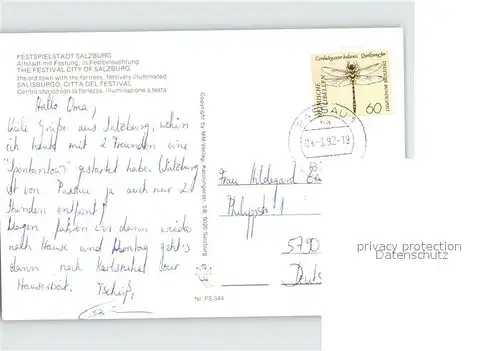 FESTSPIELSTADT SALZBURG
Altstadt mit Festung, in Festbeleuchtung
THE FESTIVAL CITY OF SALZBURG
the old town with the fortress, festively illuminated
SALISBURGO, CITTA DEL FESTIVAL
Centro storico con la fortezza, illuminazione a festa
Hallo Oma,
Viele Grüße aus Salzburg, wohin
ich heute mit 2 Freunden eine
"Spontantour" gestartet habe (Salzburg
ist von Passau ja auch nur 2
Stunden entfernt)
Morgen fahren wir dann wieder
nach Hause und Montag geht's
dann nach Karlsruhe zur
Hausarbeit. Tschüß,
Nr. FS 344
Cordulegaster bidentata Quelljungfer
HEIMISCHE
LIBELLEN
DEUTSCHE BUNDESPOST
60
PASSAU 1
Frau Hildegard
Philippstr. 1
5790
privacy protection
Datenschutz